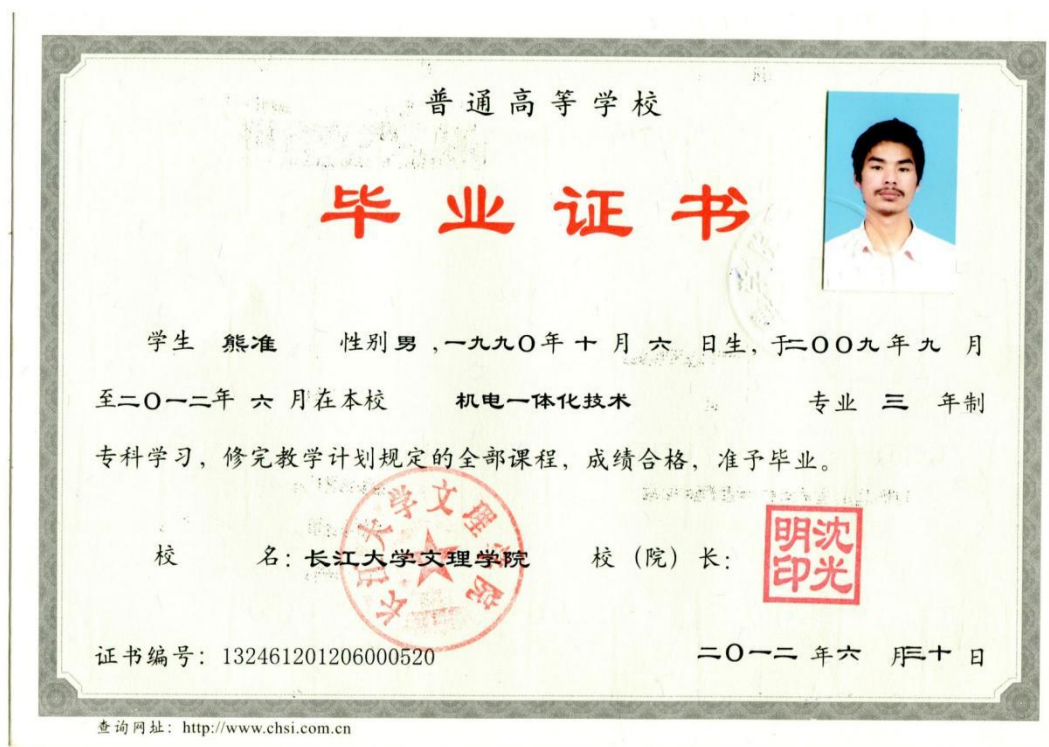 普通高等学校
毕业证书
学生 熊准 性别男,一九九〇年十月六日生,于二〇〇九年九月
至二〇一二年六月在本校 机电一体化技术 专业 三 年制
专科学习,修完教学计划规定的全部课程,成绩合格,准予毕业。
校 名:长江大学文理学院 校(院)长:
长江大学文理学院
沈光明印
证书编号:132461201206000520 二〇一二年六月三十日
查询网址:http://www.chsi.com.cn